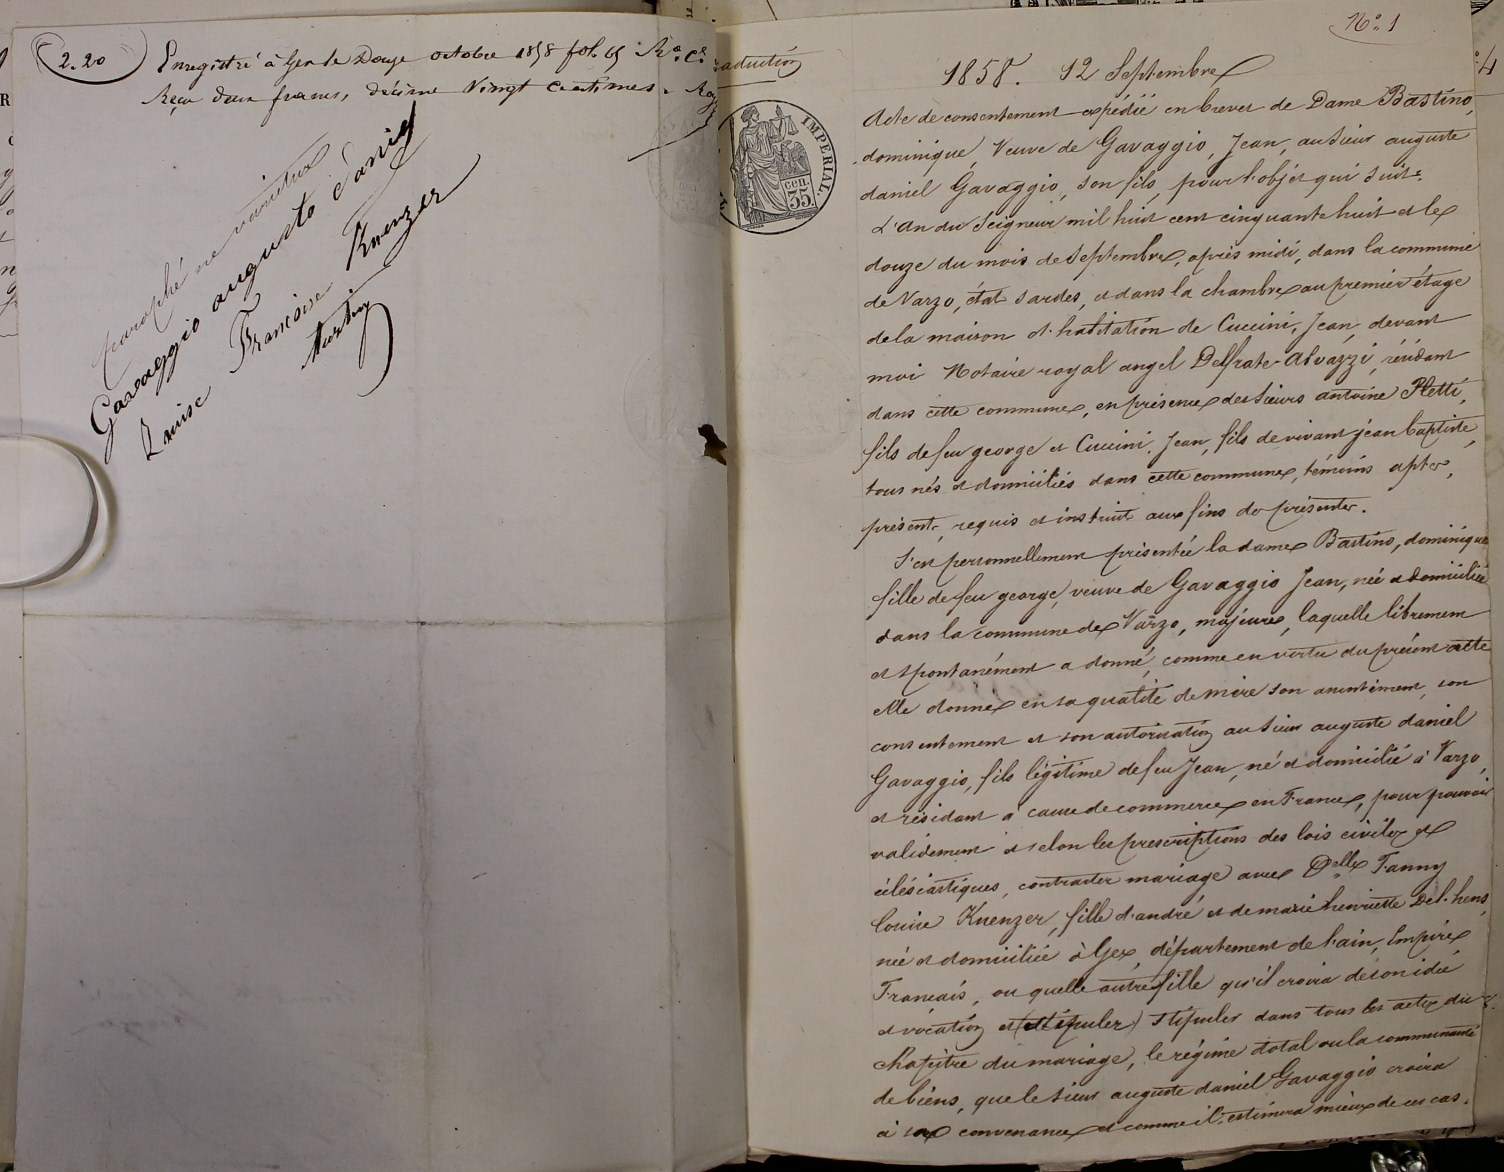 2.20
Enregistré à Gex le Douze octobre 1858 fol. 65 Ro. Ce.
Reçu deux francs, décime Vingt centimes.
paraphé ne varietur
Gavaggio augusto daniel
Louise Francoise Kuenzer
traduction
IMPERIAL.
cen.
35.
No. 1
1858. 12 Septembre
Acte de consentement expédié en brevet de Dame Bastino,
dominique, Veuve de Gavaggio, Jean, au Sieur auguste
daniel Gavaggio, son fils, pour l'objet qui suit.
L'An du Seigneur mil huit cent cinquante huit et le
douze du mois de Septembre, après midi, dans la commune
de Varzo, état sardes, et dans la chambre au premier étage
de la maison d'habitation de Cuccini, Jean, devant
moi Notaire royal angel Delfrate-Alvazzi, résidant
dans cette commune, en présence des Sieurs antoine Pletti,
fils de feu george et Cuccini, Jean, fils de vivant jean baptiste,
tous nés et domiciliés dans cette commune, témoins aptes,
présents, requis et instruit aux fins de présenter.
S'est personnellement présentée la dame Bastino, dominique
fille de feu george, veuve de Gavaggio Jean, née et domiciliée
dans la commune de Varzo, majeure, laquelle librement
et spontanément a donné, comme en vertu du présent acte
elle donne en sa qualité de mère son assentiment, son
consentement et son autorisation au Sieur auguste daniel
Gavaggio, fils légitime de feu Jean, né et domicilié à Varzo,
et résidant à cause de commerce en France, pour pouvoir
validement et selon les prescriptions des lois civiles et
éclésiastiques, contracter mariage avec Delle Fanny
Louise Kuenzer, fille d'andré et de marie henriette Del'hens,
née et domiciliée à Gex, département de l'ain, Empire
Français, ou quelle autre fille qu'il croira de son idée
et vocation et (stipuler) stipuler dans tous les actes du
chapitre du mariage, le régime dotal ou la communauté
de biens, que le Sieur auguste daniel Gavaggio croira
à sa convenance et comme il estimera mieux de ces cas.